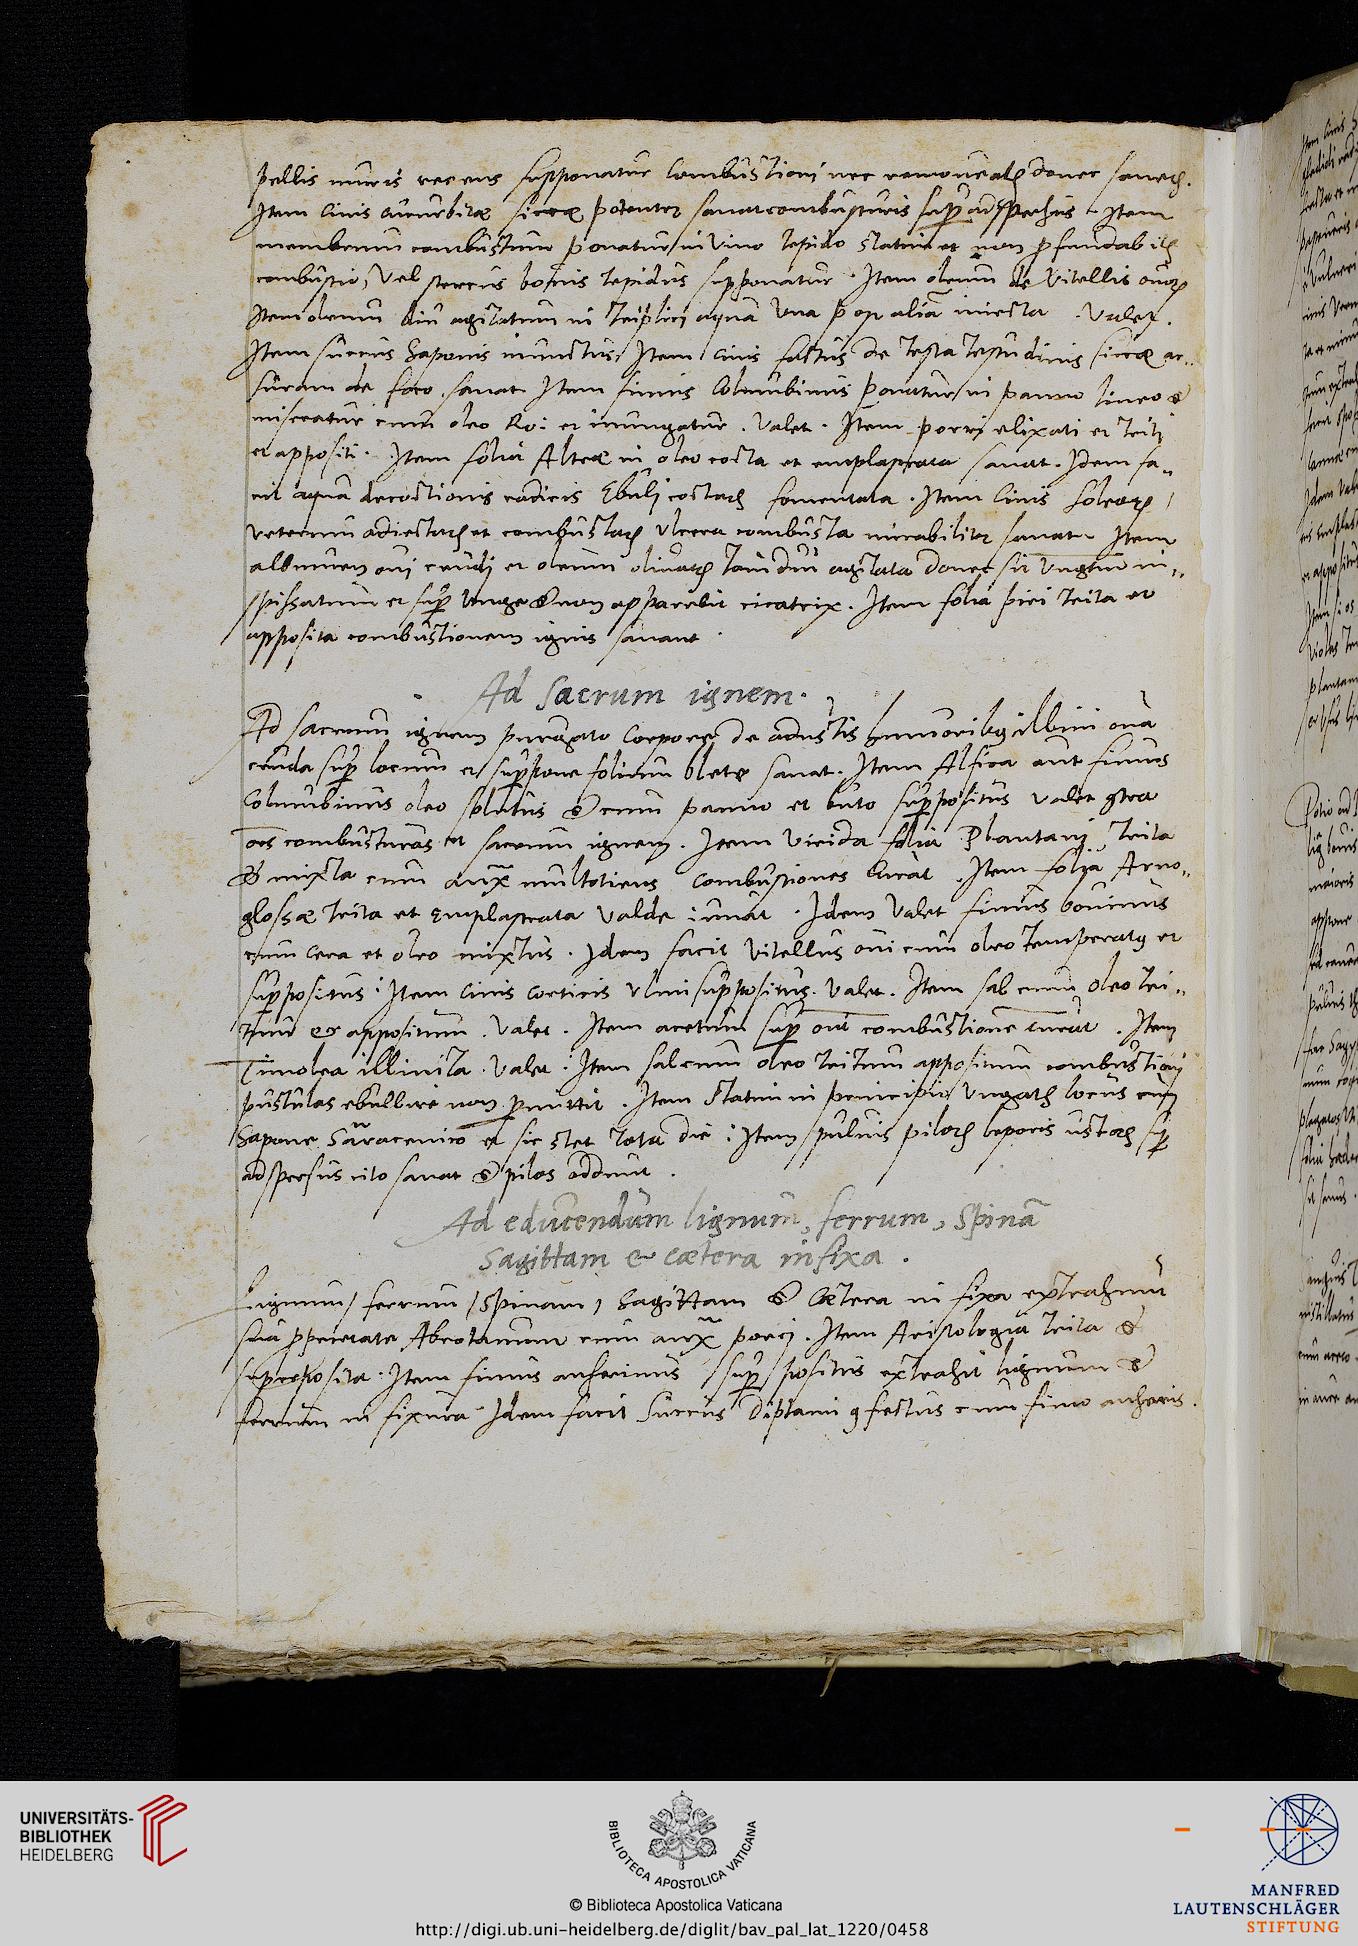 pellis muris recens supponatur Combustioni nec remoueatʳ donec sanetʳ.
Item Cinis cucurbitæ siccæ potenter sanat combusturis sup adspersus. Item
membrum combustum ponatur in Vino tepido statim et non pfundabitʳ
combustio, Vel stercus bouis tepidus supponatur. Item oleum de Vitellis ouoʳ
Item oleum diu agitatum in triplici aqua Una post aliã iniecta. Valet.
Item succus Saponis inunctus. Item Cinis factus de testa testudinis siccæ ar-
suram de foco sanat. Item fimus Columbinus ponatur in panno lineo &
misceatur cum oleo Ro: et inungatur. Valet. Item porri elixati et triti
et appositi. Item folia Alteæ in oleo cocta et emplastrata sanat. Idem fa-
cit aqua decoctionis radicis Ebuli coctaʳ fomentata. Item Cinis soleaʳ
veterum adiectaʳ et combustaʳ Ulcera combusta mirabiliter sanat. Item
albumen oui crudi et oleum oliuaʳ tam diu agitata donec sit Ungētum in-
spissatum et sup Unge & non apparebit cicatrix. Item folia piri trita et
apposita combustionem ignis sanant.
Ad Sacrum ignem.
Ad sacrum ignem purgato Corpore de adustis humoribꝫ illini oua
cruda sup locum et suppone folium bletæ sanat. Item aut fimus
Columbinus oleo solutus & cum panno et luto suppositus Valet gtra
oēs combusturas et sacrum ignem. Item Virida folia Plantani trita
& mixta cum aux̃ multotiens Combustiones Curat. Item folia Arno-
glossæ trita et Emplastrata Valde iuuat. Idem Valet fimus bouinus
cum Cera et oleo mixtus. Idem facit Vitellus oui cum oleo temperatꝰ et
suppositus: Item Cinis Corticis Ulmi suppositus. Valet. Item sal cum Oleo tri-
tum et appositum. Valet. Item acetum sup oīē combustione curat. Item
Timolea illinita. Valet: Item sal cum oleo tritum appositum combustioni
pustulas ebullire non pmittit. Item Statim in principio Ungatʳ locus cum
Sapone Saraceniro et sic stet tota die: Item puluis piloʳ leporis ustoʳ sup
adspersus cito sanat & pilos addunt.
Ad educendum lignum, ferrum, Spinã
Sagittam & cætera infixa.
Lignum, ferrum, Spinam, Sagittam & Cætera in fixa extrahunt
sua pprietate Abrotanum cum aux̃ porci. Item Aristologia trita &
superposita. Item fimus anserinus sup positus extrahit lignum &
ferrum in fixura. Idem facit Succus Diptami gfectus cum fimo anseris.
UNIVERSITÄTS-
BIBLIOTHEK
HEIDELBERG
BIBLIOTECA APOSTOLICA VATICANA
© Biblioteca Apostolica Vaticana
http://digi.ub.uni-heidelberg.de/diglit/bav_pal_lat_1220/0458
MANFRED
LAUTENSCHLÄGER
STIFTUNG